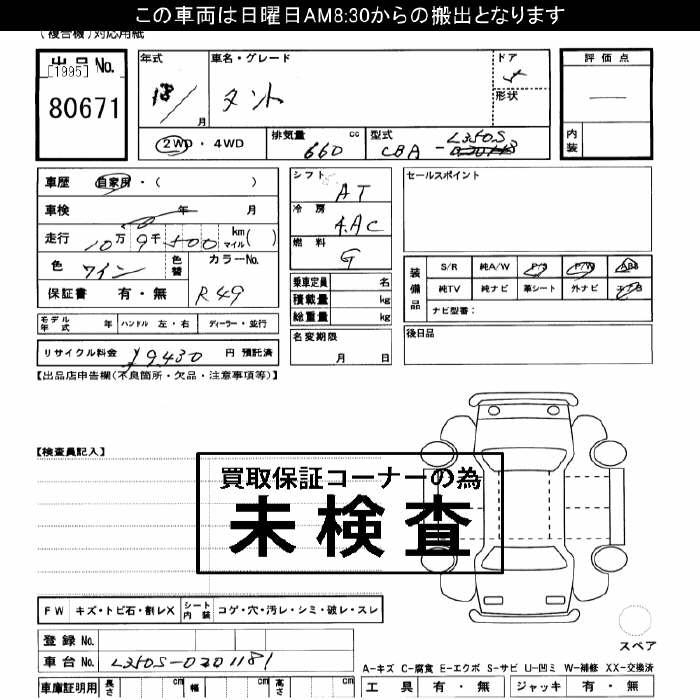 この車両は日曜日AM8:30からの搬出となります
(複合機)対応用紙
出品No.
[1995]
80671
年式
18/
月
車名・グレード
タント
ドア
5
形状
評価点
―
内装
2WD・4WD
排気量 cc
660
型式
CBA - L350S
車歴 自家用・( )
車検 年 月
走行 10万 9千 500 km マイル( )
色 ワイン 色替 カラーNo.
R49
保証書 有・無
シフト
AT
冷房
A.AC
燃料
G
乗車定員 名
積載量 kg
総重量 kg
セールスポイント
装備品
S/R 純A/W P/S P/W ABS
純TV 純ナビ 革シート 外ナビ エアB
ナビ型番:
モデル年式 年 ハンドル 左・右 ディーラー・並行
名変期限
月 日
後日品
リサイクル料金 ¥9,430 円 預託済
【出品店申告欄(不良箇所・欠品・注意事項等)】
【検査員記入】
買取保証コーナーの為
未検査
FW キズ・トビ石・割レX シート内装 コゲ・穴・汚レ・シミ・破レ・スレ
登録No.
車台No. L350S-0201181
スペア
A-キズ C-腐食 E-エクボ S-サビ U-凹ミ W-補修 XX-交換済
車庫証明用 長さ cm 幅 cm 高さ cm
工具 有・無 ジャッキ 有・無